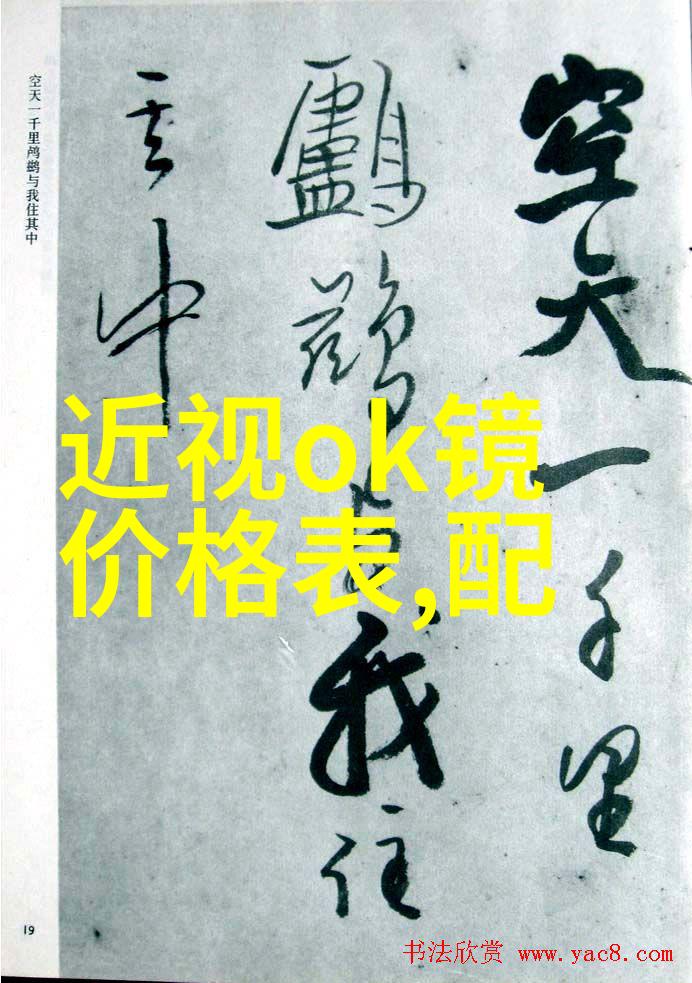 空天一千里
鸕鷀与我住
其中
空天一千里鸬鹚与我住其中
近视ok镜
价格表,配
19
书法欣赏 www.yac8.com